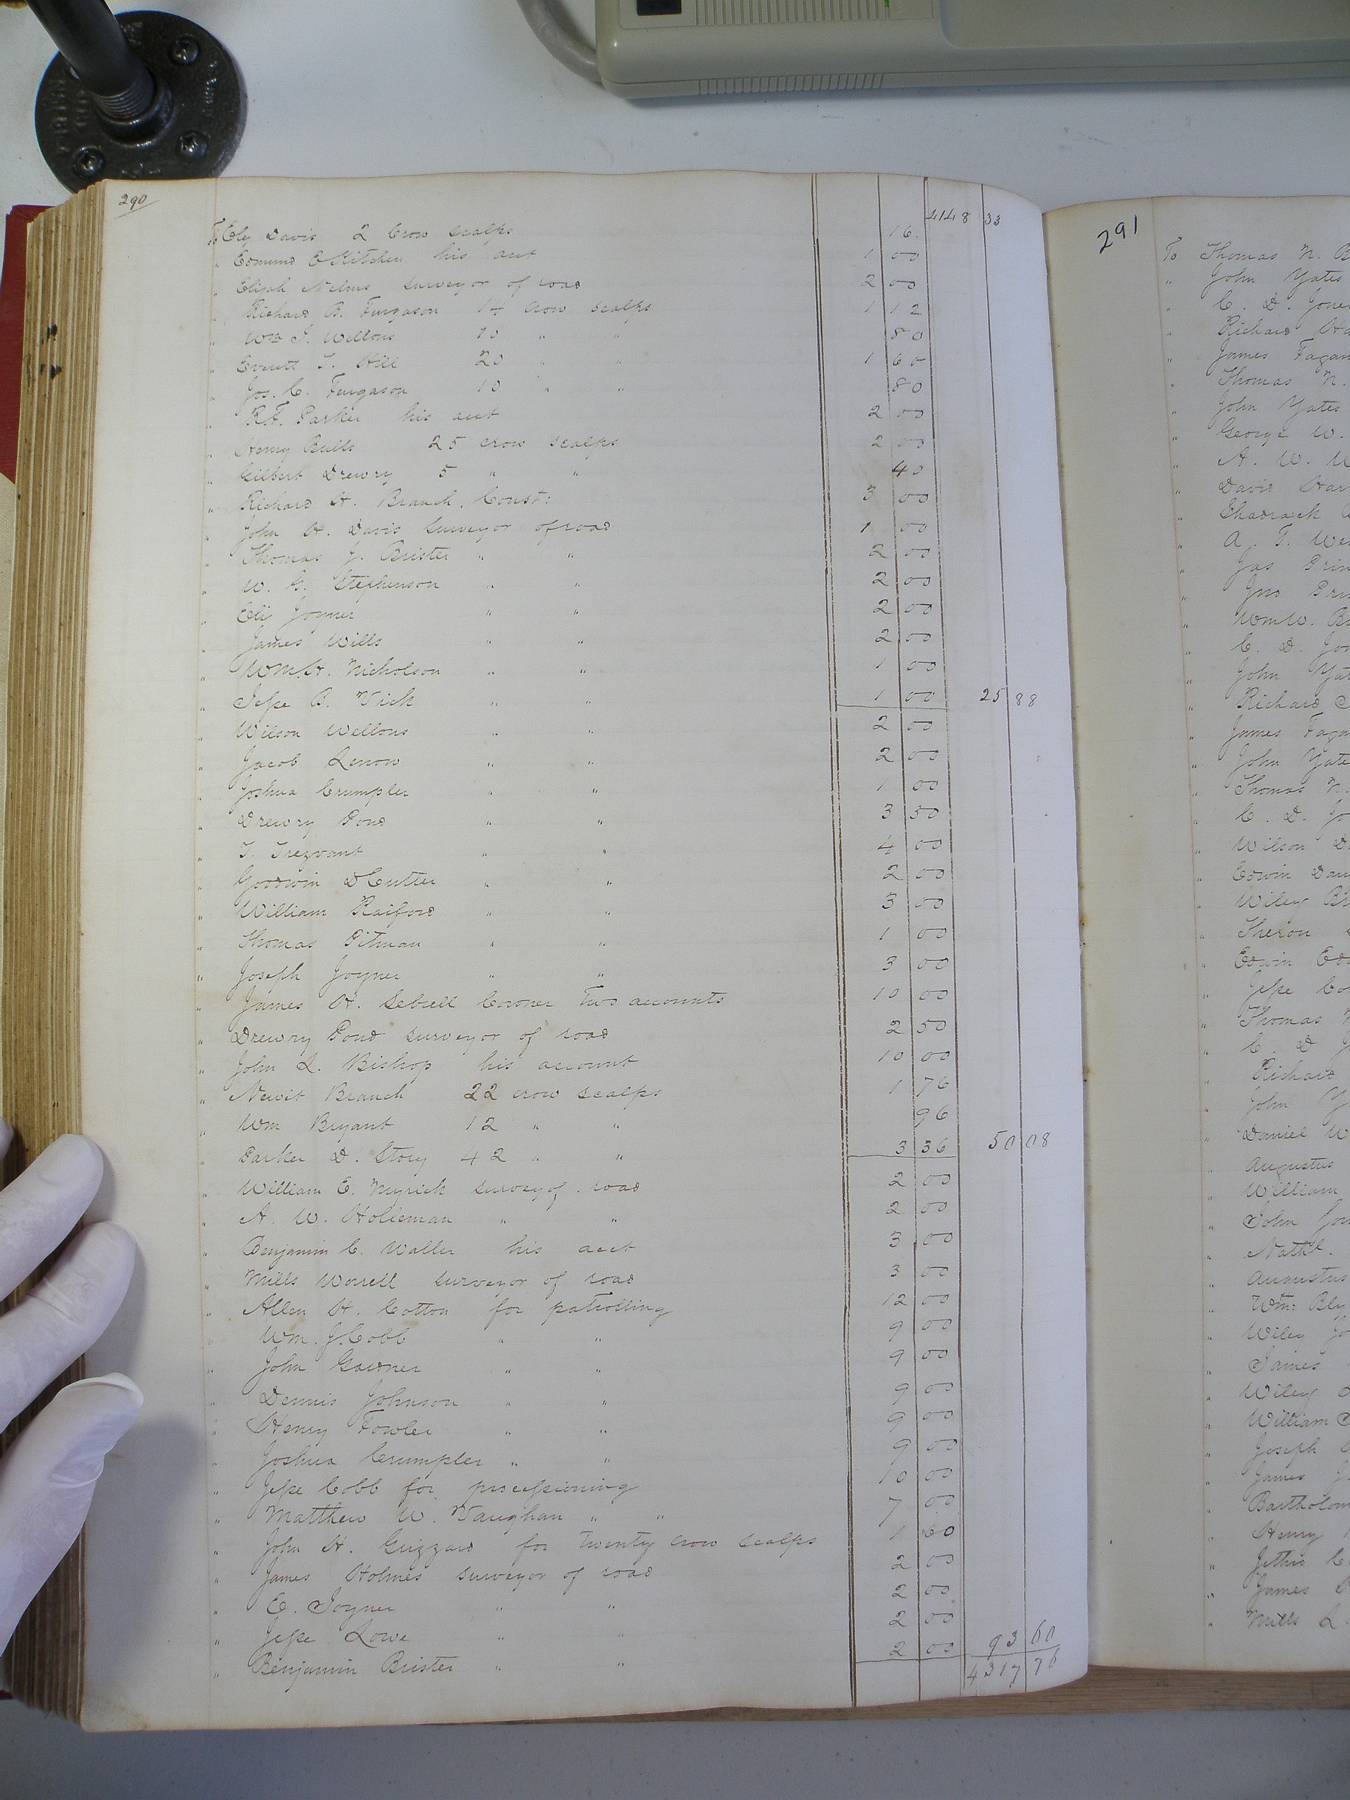 290
4148 33
To Ely Davis 2 Crow scalps 16
" Edmund E Kitchen his acct 1 00
" Elijah Nelms surveyor of road 2 00
" Richard B. Furgason 14 crow scalps 1 12
" Wm J. Wellons 10 " " 80
" Everett T. Hill 20 " " 1 60
" Jos. C. Furgason 10 " " 80
" R.F. Parker his acct 2 00
" Henry Bulls 25 crow scalps 2 00
" Gilbert Drewry 5 " " 40
" Richard H. Branch, Const: 3 00
" John H. Davis Surveyor of road 1 00
" Thomas J. Brister " " 2 00
" W. G. Stephenson " " 2 00
" Eli Joyner " " 2 00
" James Wills " " 2 00
" Wm H. Nicholson " " 1 00
" Jesse B. Vick " " 1 00 25 88
" Wilson Wellons " " 2 00
" Jacob Lenow " " 2 00
" Joshua Crumpler " " 1 00
" Drewry Pond " " 3 50
" T. Trezvant " " 4 00
" Goodwin D Cutler " " 2 00
" William Raiford " " 3 00
" Thomas Pitman " " 1 00
" Joseph Joyner " " 3 00
" James H. Sebrell Coroner two accounts 10 00
" Drewry Pond surveyor of road 2 50
" John L. Bishop his account 10 00
" Newit Branch 22 crow scalps 1 76
" Wm Bryant 12 " " 96
" Parker D. Story 42 " " 3 36 50 08
" William E. Myrick survey of. road 2 00
" A. W. Holleman " " 2 00
" Benjamin C. Waller his acct 3 00
" Mills Worrell surveyor of road 3 00
" Allen H. Cotton for patrolling 12 00
" Wm. J. Cobb " " 9 00
" John Gardner " " 9 00
" Dennis Johnson " " 9 00
" Henry Fowler " " 9 00
" Joshua Crumpler " " 9 00
" Jesse Cobb for processioning 10 00
" Matthew W. Vaughan " " 7 00
" John H. Grizzard for twenty crow scalps 1 60
" James Holmes surveyor of road 2 00
" E. Joyner " " 2 00
" Jesse Lowe " " 2 00
" Benjamin Brister " " 2 00 93 60
4317 76
291
To Thomas N. B
" John Yates
" C. D. Jone
" Richard Ha
" James Fagan
" Thomas N.
" John Yates
" George W.
" A. W. W
" David Har
" Shadrach
" A. T. We
" Jas Prin
" Jno Pri
" Wm W. B
" C. D. Jon
" John Yat
" Richard
" James Faga
" John Yate
" Thomas N.
" C. D. Jo
" Wilson D
" Edwin Dau
" Wiley Br
" Theron
" Edwin Ed
" Jesse Co
" Thomas
" C. D J
" Richard
" John Y
" Daniel W
" Augustus
" William
" John Jou
" Nathl.
" Augustus
" Wm: Bly
" Wiley Jo
" James
" Wiley
" William
" Joseph
" James J
" Bartholom
" Henry
" Jethro C
" James
" Mills L.